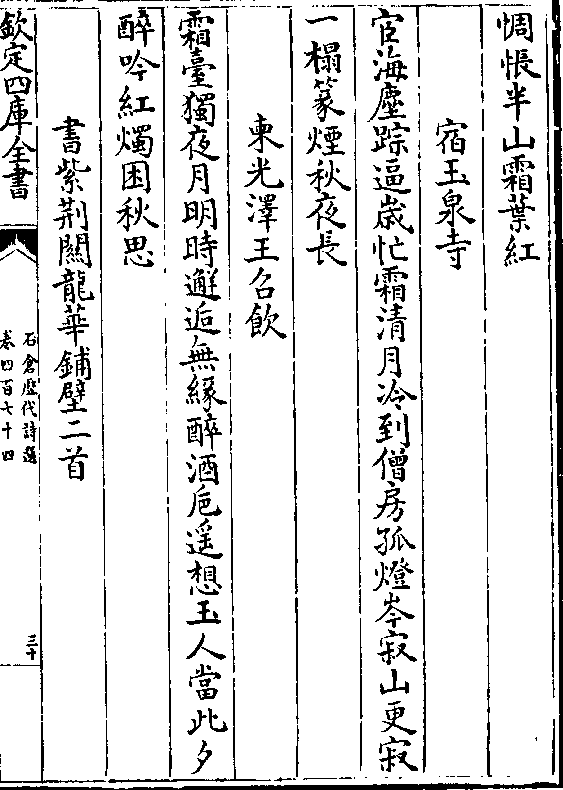 惆悵半山霜葉紅
宿玉泉寺
宦海塵踪逼歳忙霜清月冷到僧房孤燈岑寂山更寂
一榻篆煙秋夜長
柬光澤王召飲
霜臺獨夜月明時邂逅無緣醉酒巵遥想玉人當此夕
醉吟紅燭困秋思
書紫荆關龍華鋪壁二首
欽定四庫全書
石倉歴代詩選
卷四百七十四
三十